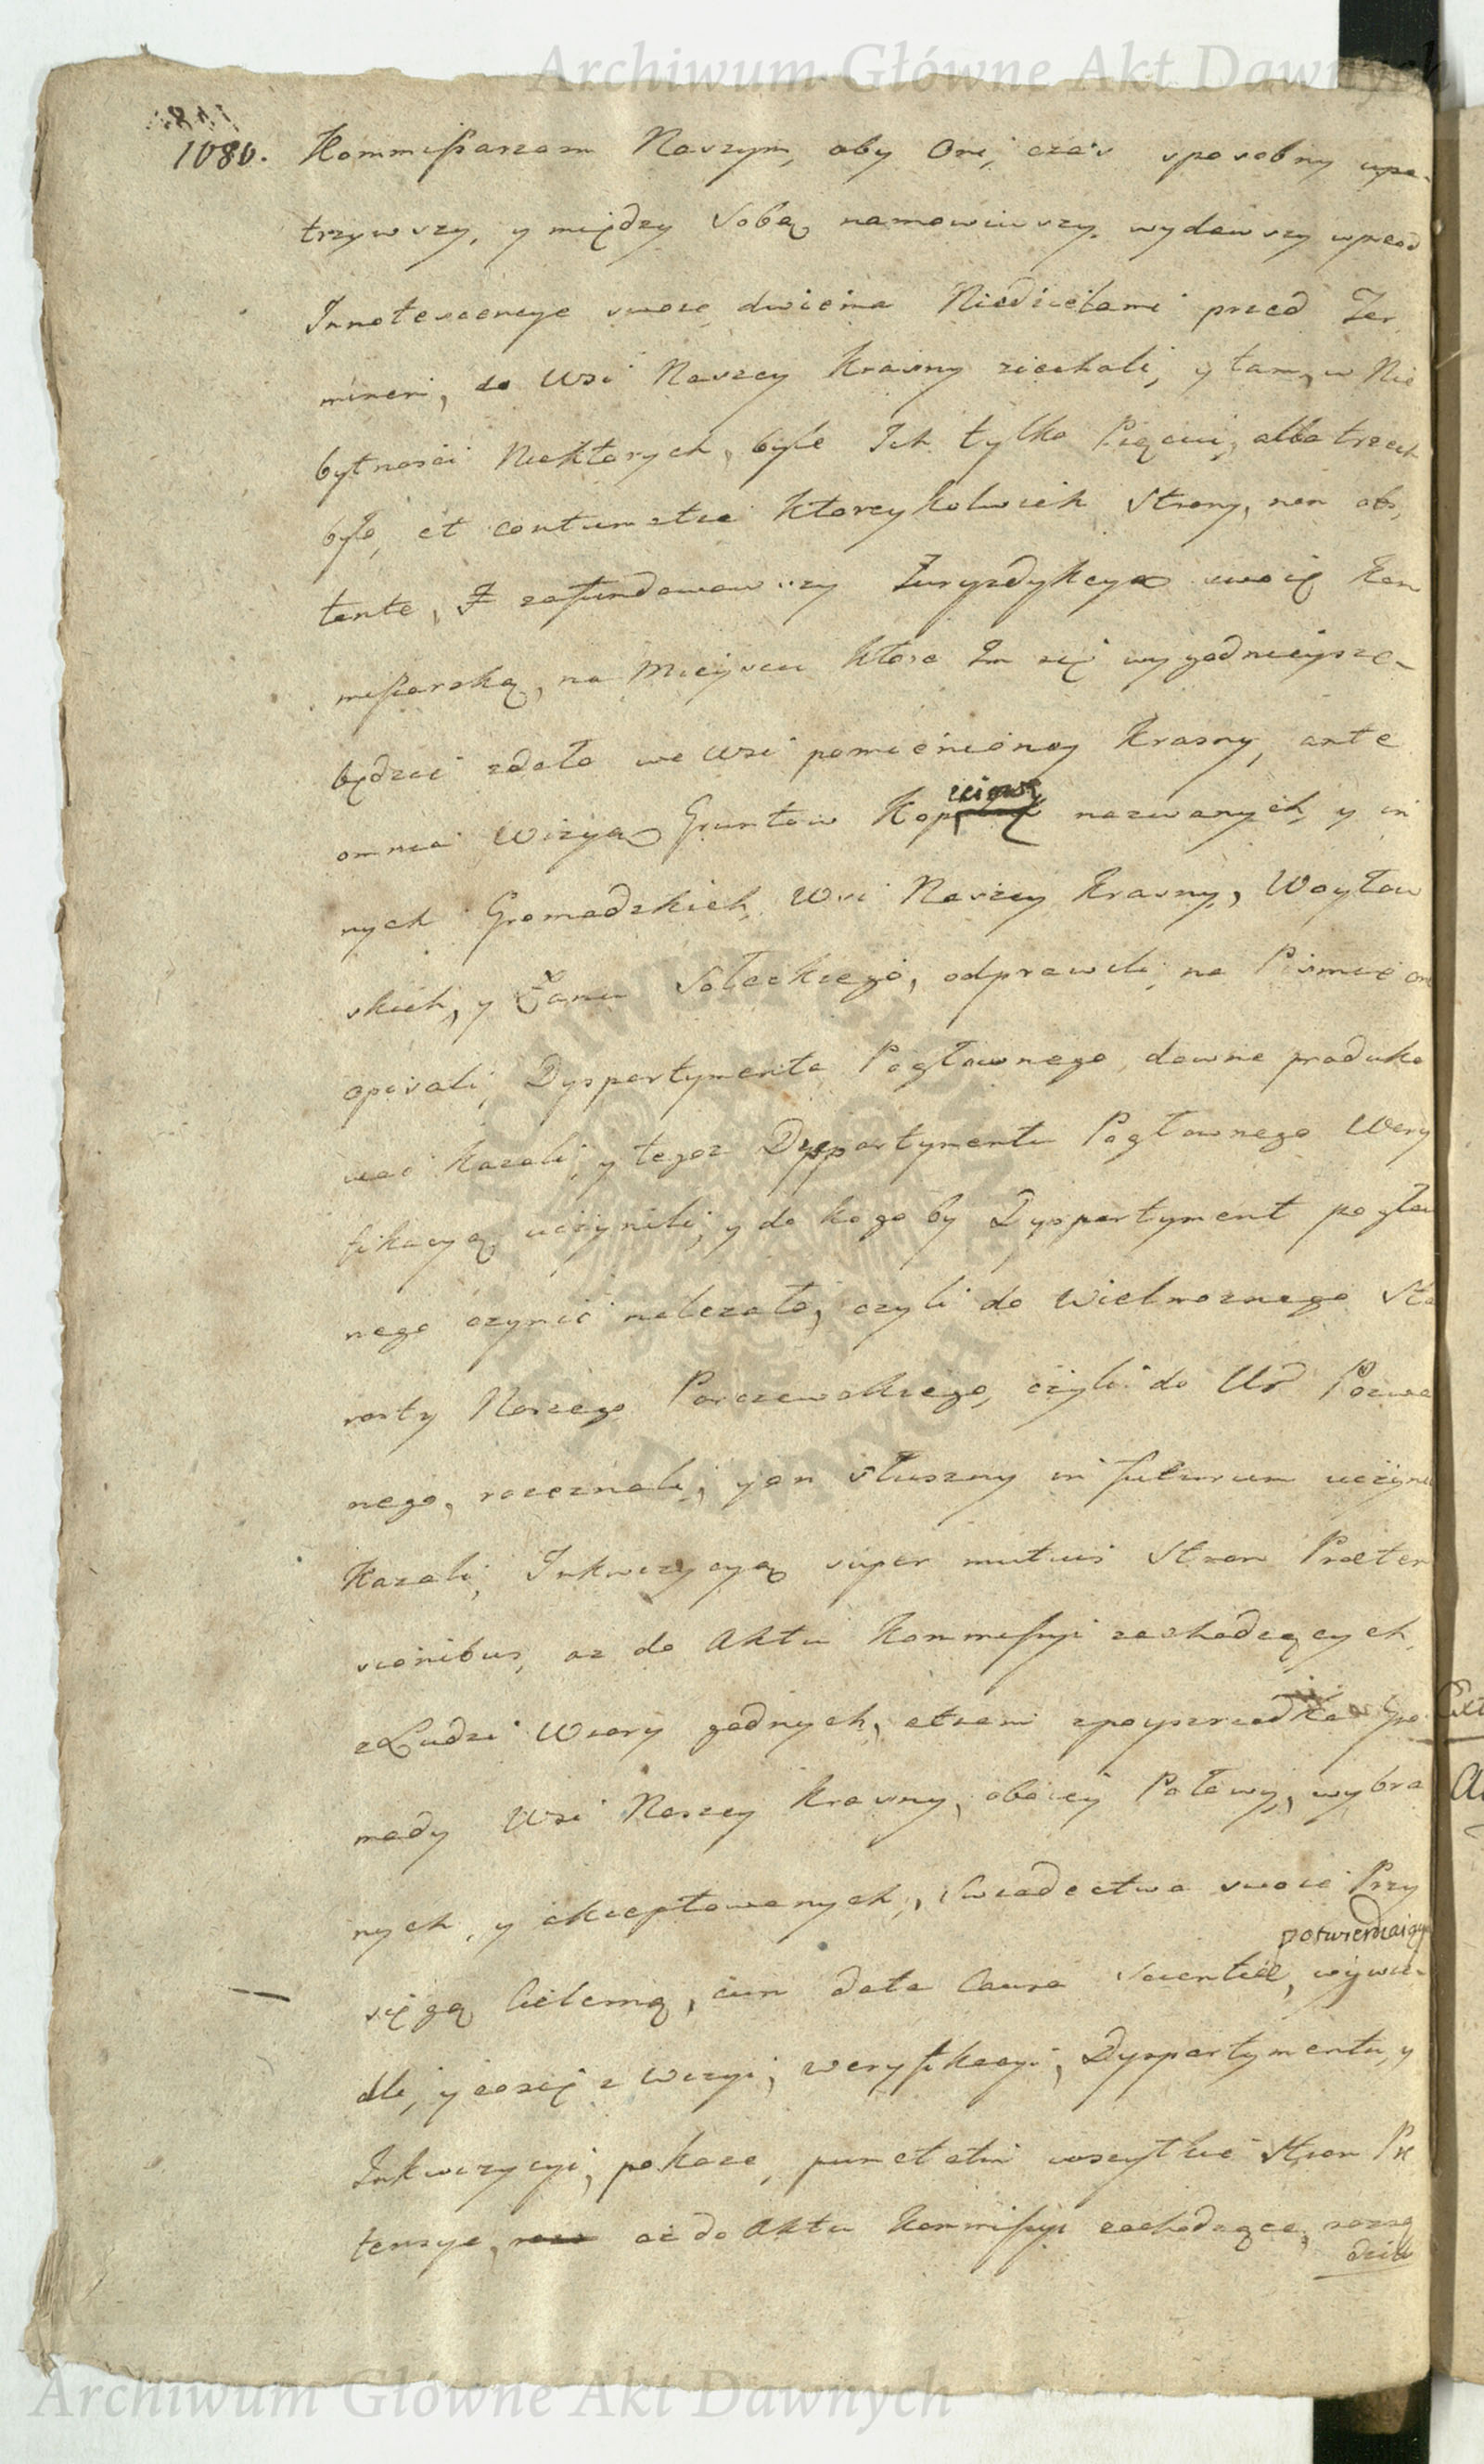 Archiwum Główne Akt Dawnych
1080. Kommißarzom Naszym, aby Oni, czas sposobny upa-
trzywszy, y między Sobą namowiwszy, wydawszy wprzod
Innotescencye swoie dwiema Niedzielami przed Ter
minem, do Wsi Naszey Krasny ziechali, y tam, w Nie
bytnosci Niektorych, byle Ich tylko Pięciu, albo trzech
było, et contumatia ktoreykolwiek Strony, non obs,
tante, zafundowawszy Juryzdykcyą swoię Kom
mißarską, na Mieyscu ktore Im się wygodnieysze-
będzie zdało we Wsi pomienioney Krasny, ante
omnia Wizyą Gruntow Kop nazwanych, y in
nych Gromadzkich, Wsi Naszey Krasny, Woytow
skich, y Łanu Sołeckiego, odprawili, na Pismie one
opisali, Dyspartymenta Pogłownego, dawne produko
wać kazali, y tegoz Dyspartymentu Pogłownego Wery
fikacyą uczynili, y do kogo by Dyspartyment pogłow
nego czynić nalezało, czyli do Wielmoznego Sta
rosty Naszego Parczewskiego, czyli do Ur Pozwa
nego, rozeznali, y on słuszny in futurum uczynić
kazali, Inkwizycyą super mutuis Stron Præten
sionibus, az do Aktu Kommißyi zachodzących,
z Ludzi Wiary godnych, etiam zpoyszrzodka Gro
mady Wsi Naszey Krasny, oboiey Połowy, wybra
nych, y akceptowanych, Swiadectwa swoie Przy
potwierdzaiących
sięgą Cielesną, cum data Causa Scientiæ, wywie-
dli, y co się z Wizyi, weryfikacyi, Dyspartymentu, y
Inkwizycyi, pokaze, punctatim wszytkie Stron Pre
tensye, az do Aktu Kommißyi zachodzące, rozsą
dzili
Archiwum Główne Akt Dawnych